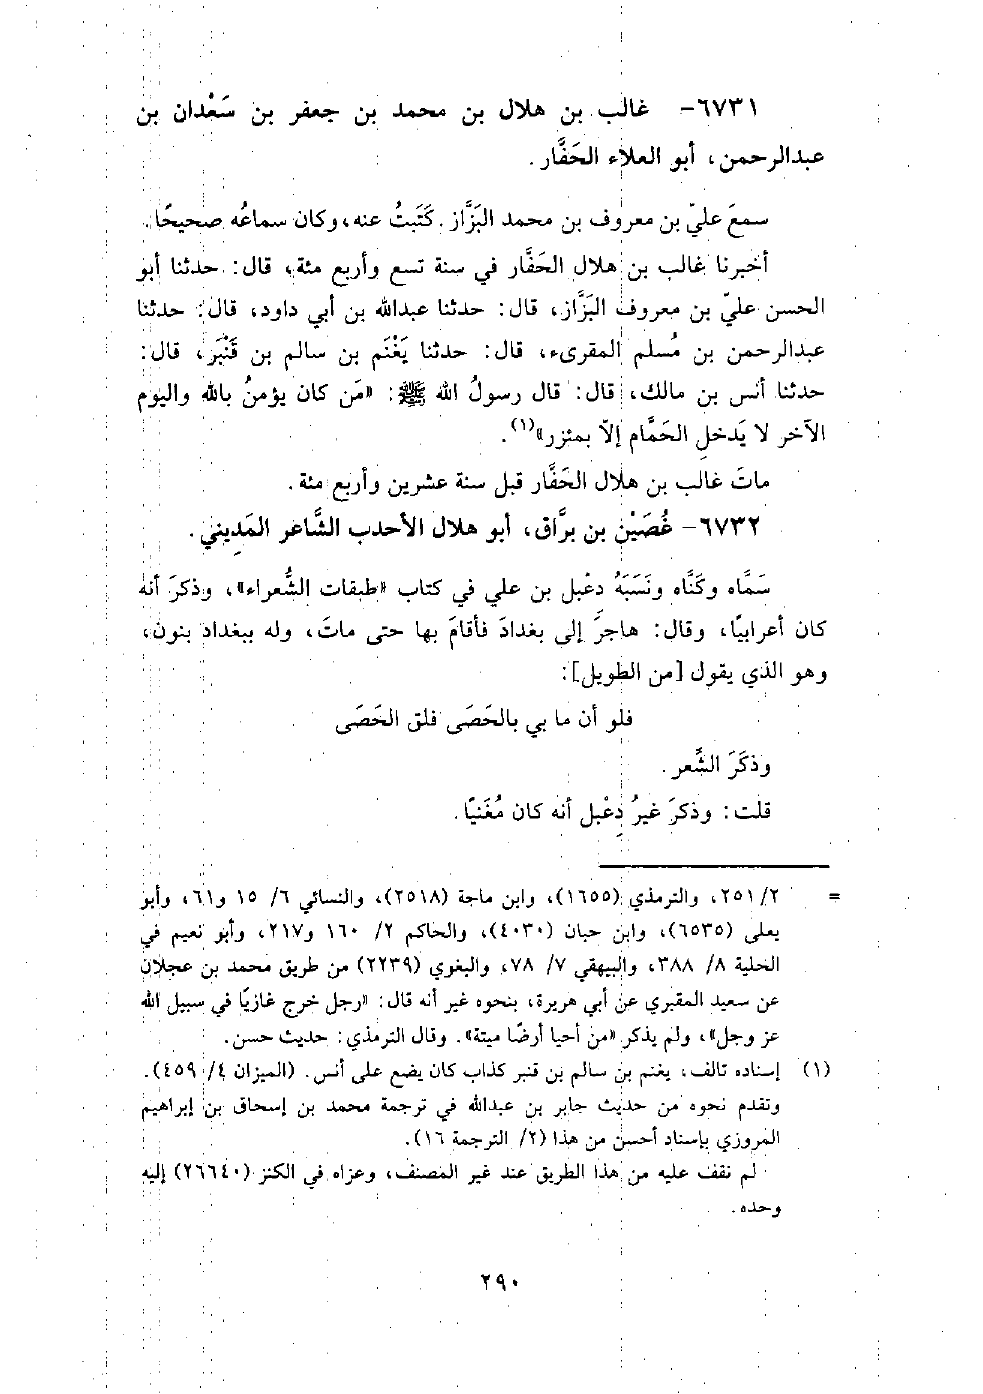 ٦٧٣١- غالب بن هلال بن محمد بن جعفر بن سَعْدان بن
عبدالرحمن، أبو العلاء الحَفَّار.
سمعَ عليّ بن معروف بن محمد البَزَّاز. كَتَبتُ عنه، وكان سماعُه صحيحًا.
أخبرنا غالب بن هلال الحَفَّار في سنة تسع وأربع مئة، قال: حدثنا أبو
الحسن عليّ بن معروف البَزَّاز، قال: حدثنا عبدالله بن أبي داود، قال: حدثنا
عبدالرحمن بن مُسلم المقرىء، قال: حدثنا يَغْنَم بن سالم بن قَنْبَر، قال:
حدثنا أنس بن مالك، قال: قال رسولُ الله ﷺ: «مَن كان يؤمنُ بالله واليوم
الآخر لا يَدخلِ الحَمَّام إلاّ بمئزر»(١).
ماتَ غالب بن هلال الحَفَّار قبل سنة عشرين وأربع مئة.
٦٧٣٢- غُصَيْن بن برَّاق، أبو هلال الأحدب الشَّاعر المَدِيني.
سَمَّاه وكَنَّاه ونَسَبَهُ دعْبل بن علي في كتاب «طبقات الشُّعراء»، وذكرَ أنه
كان أعرابيًا، وقال: هاجرَ إلى بغدادَ فأقامَ بها حتى ماتَ، وله ببغداد بنون،
وهو الذي يقول [من الطويل]:
فلو أن ما بي بالحَصَى فلق الحَصَى
وذكَرَ الشَّعر.
قلت: وذكرَ غيرُ دِعْبل أنه كان مُغَنيًا.
= ٢/ ٢٥١، والترمذي (١٦٥٥)، وابن ماجة (٢٥١٨)، والنسائي ٦/ ١٥ و٦١، وأبو
يعلى (٦٥٣٥)، وابن حبان (٤٠٣٠)، والحاكم ٢/ ١٦٠ و٢١٧، وأبو نعيم في
الحلية ٨/ ٣٨٨، والبيهقي ٧/ ٧٨، والبغوي (٢٢٣٩) من طريق محمد بن عجلان
عن سعيد المقبري عن أبي هريرة، بنحوه غير أنه قال: «رجل خرج غازيًا في سبيل الله
عز وجل»، ولم يذكر «من أحيا أرضًا ميتة». وقال الترمذي: حديث حسن.
(١) إسناده تالف، يغنم بن سالم بن قنبر كذاب كان يضع على أنس. (الميزان ٤/ ٤٥٩).
وتقدم نحوه من حديث جابر بن عبدالله في ترجمة محمد بن إسحاق بن إبراهيم
المروزي بإسناد أحسن من هذا (٢/ الترجمة ١٦).
لم نقف عليه من هذا الطريق عند غير المصنف، وعزاه في الكنز (٢٦٦٤٠) إليه
وحده.
٢٩٠